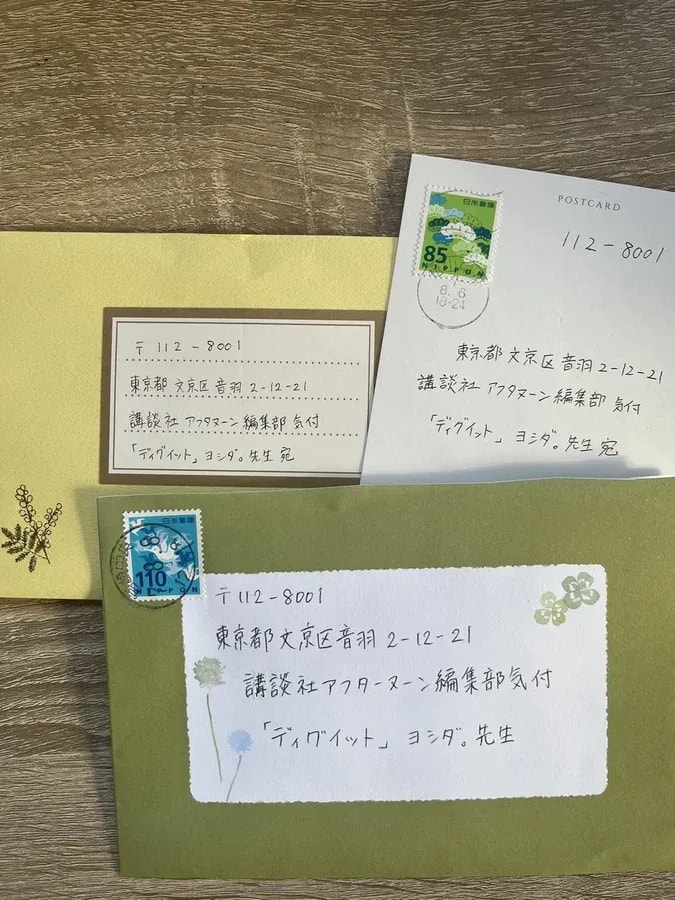 〒112-8001
東京都文京区音羽2-12-21
講談社 アフタヌーン編集部 気付
「ディグイット」ヨシダ。先生 宛
日本郵便
85
NIPPON
8.6
18-24
POSTCARD
112-8001
東京都文京区音羽2-12-21
講談社 アフタヌーン編集部 気付
「ディグイット」ヨシダ。先生 宛
日本郵便
110
NIPPON
〒112-8001
東京都文京区音羽2-12-21
講談社アフターヌーン編集部気付
「ディグイット」ヨシダ。先生